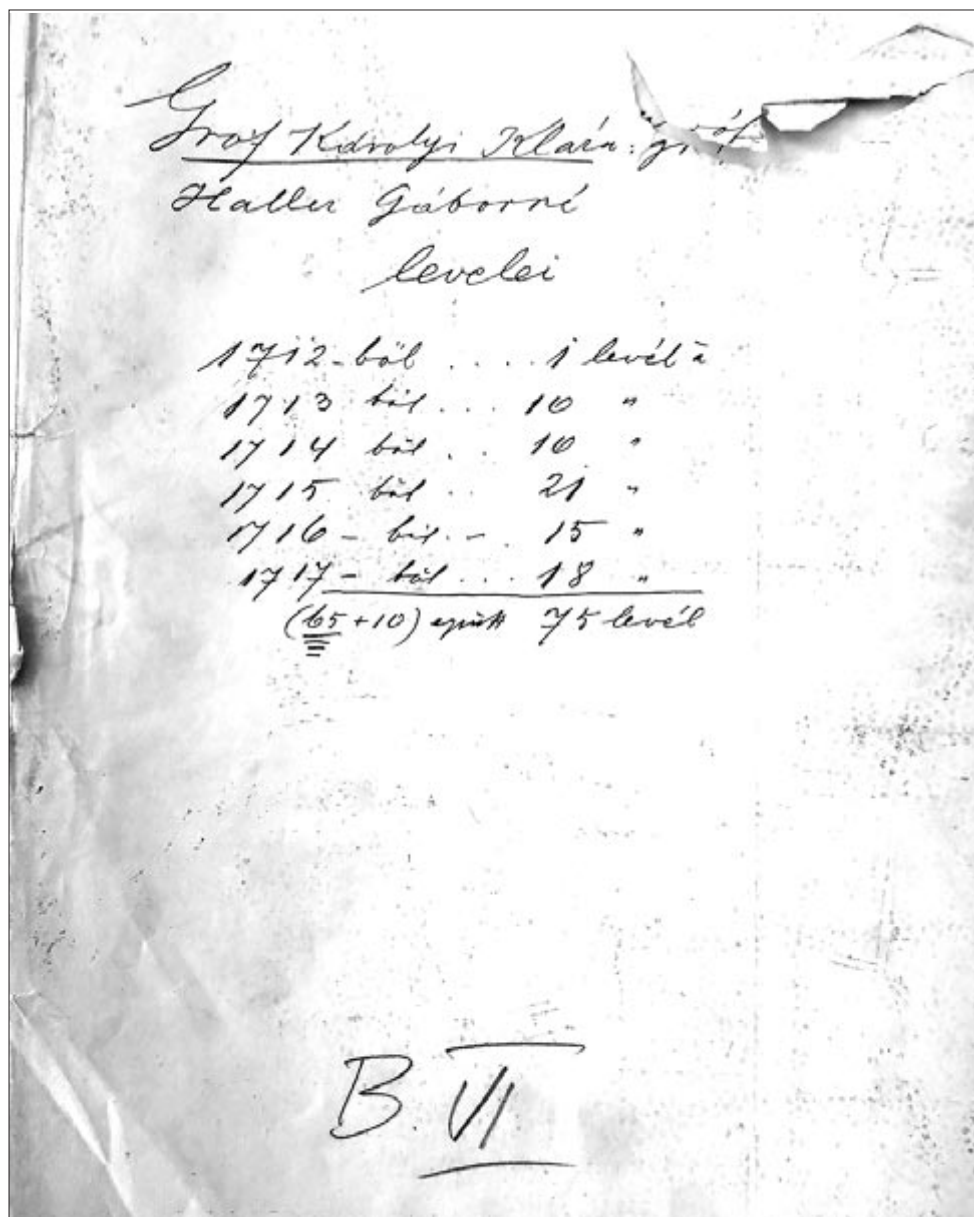 Gróf Károlyi Klára: gróf
Haller Gáborné
levelei
1712-ből .... 1 levél
1713 ból ... 10 "
1714 ből . .. 10 "
1715 ből .. 21 "
1716 - ból - . 15 "
1717 - ből ... 18 "
(65 + 10) együtt 75 levél
B. VI